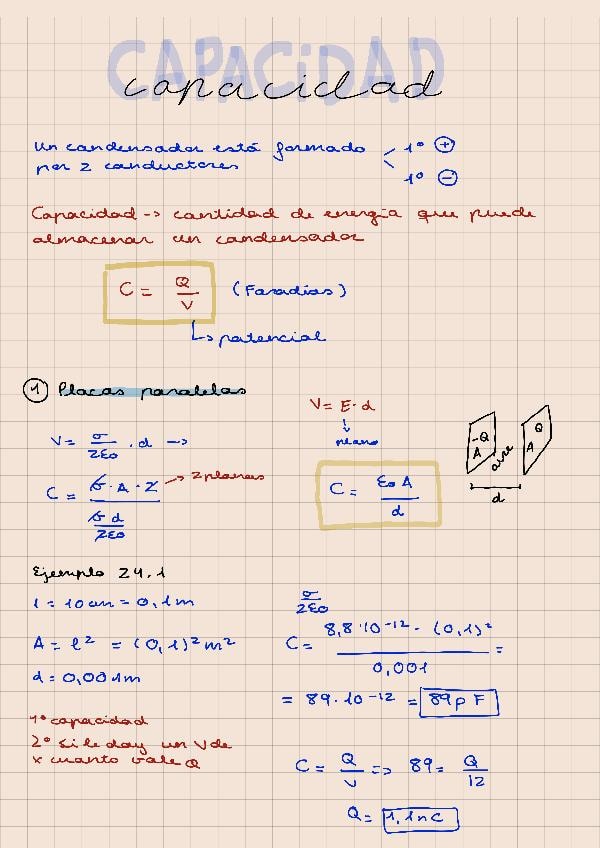 CAPACIDAD
capacidad
Un condensador está formado < 1º ⊕
por 2 conductores 1º ⊖
Capacidad -> cantidad de energía que puede
almacenar un condensador
C = Q/V (Faradias)
↳ potencial
① Placas paralelas
V = E · d
↓
plano
V = σ/2ε0 · d ->
C = (σ · A · 2)/(σ d/2ε0) -> 2 planas
C = ε0 A/d
-Q
A
aire
Q
A
d
Ejemplo 24.1
l = 10 cm = 0,1 m
A = l² = (0,1)² m²
d = 0,001 m
σ/2ε0
C = (8,8·10⁻¹² · (0,1)²)/0,001 =
= 89·10⁻¹² = 89 p F
1º capacidad
2º si le doy un V de
x cuanto vale Q
C = Q/V => 89 = Q/12
Q = 1,1 n C